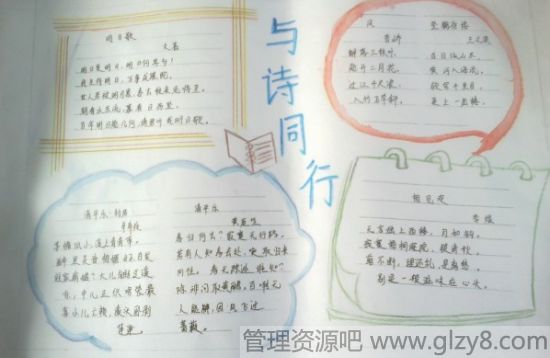 明日歌
文嘉
明日复明日，明日何其多！
我生待明日，万事成蹉跎。
世人若被明日累，春去秋来老将至。
朝看水东流，暮看日西坠。
百年明日能几何，请君听我明日歌。
与诗同行
风
李峤
解落三秋叶，
能开二月花，
过江千尺浪，
入竹万竿斜。
登鹳雀楼
王之涣
白日依山尽，
黄河入海流，
欲穷千里目，
更上一层楼。
清平乐·村居
辛弃疾
茅檐低小，溪上青青草，
醉里吴音相媚好，白发
谁家翁媪？大儿锄豆溪
东，中儿正织鸡笼，最
喜小儿亡赖，溪头卧剥
莲蓬。
清平乐
黄庭坚
春归何处？寂寞无行路，
若有人知春去处，唤取归来
同住。春无踪迹谁知？
除非问取黄鹂，百啭无
人能解，因风飞过
蔷薇。
相见欢
李煜
无言独上西楼，月如钩，
寂寞梧桐深院，锁清秋，
剪不断，理还乱，是离愁，
别是一般滋味在心头。
管理资源吧 www.glzy8.com